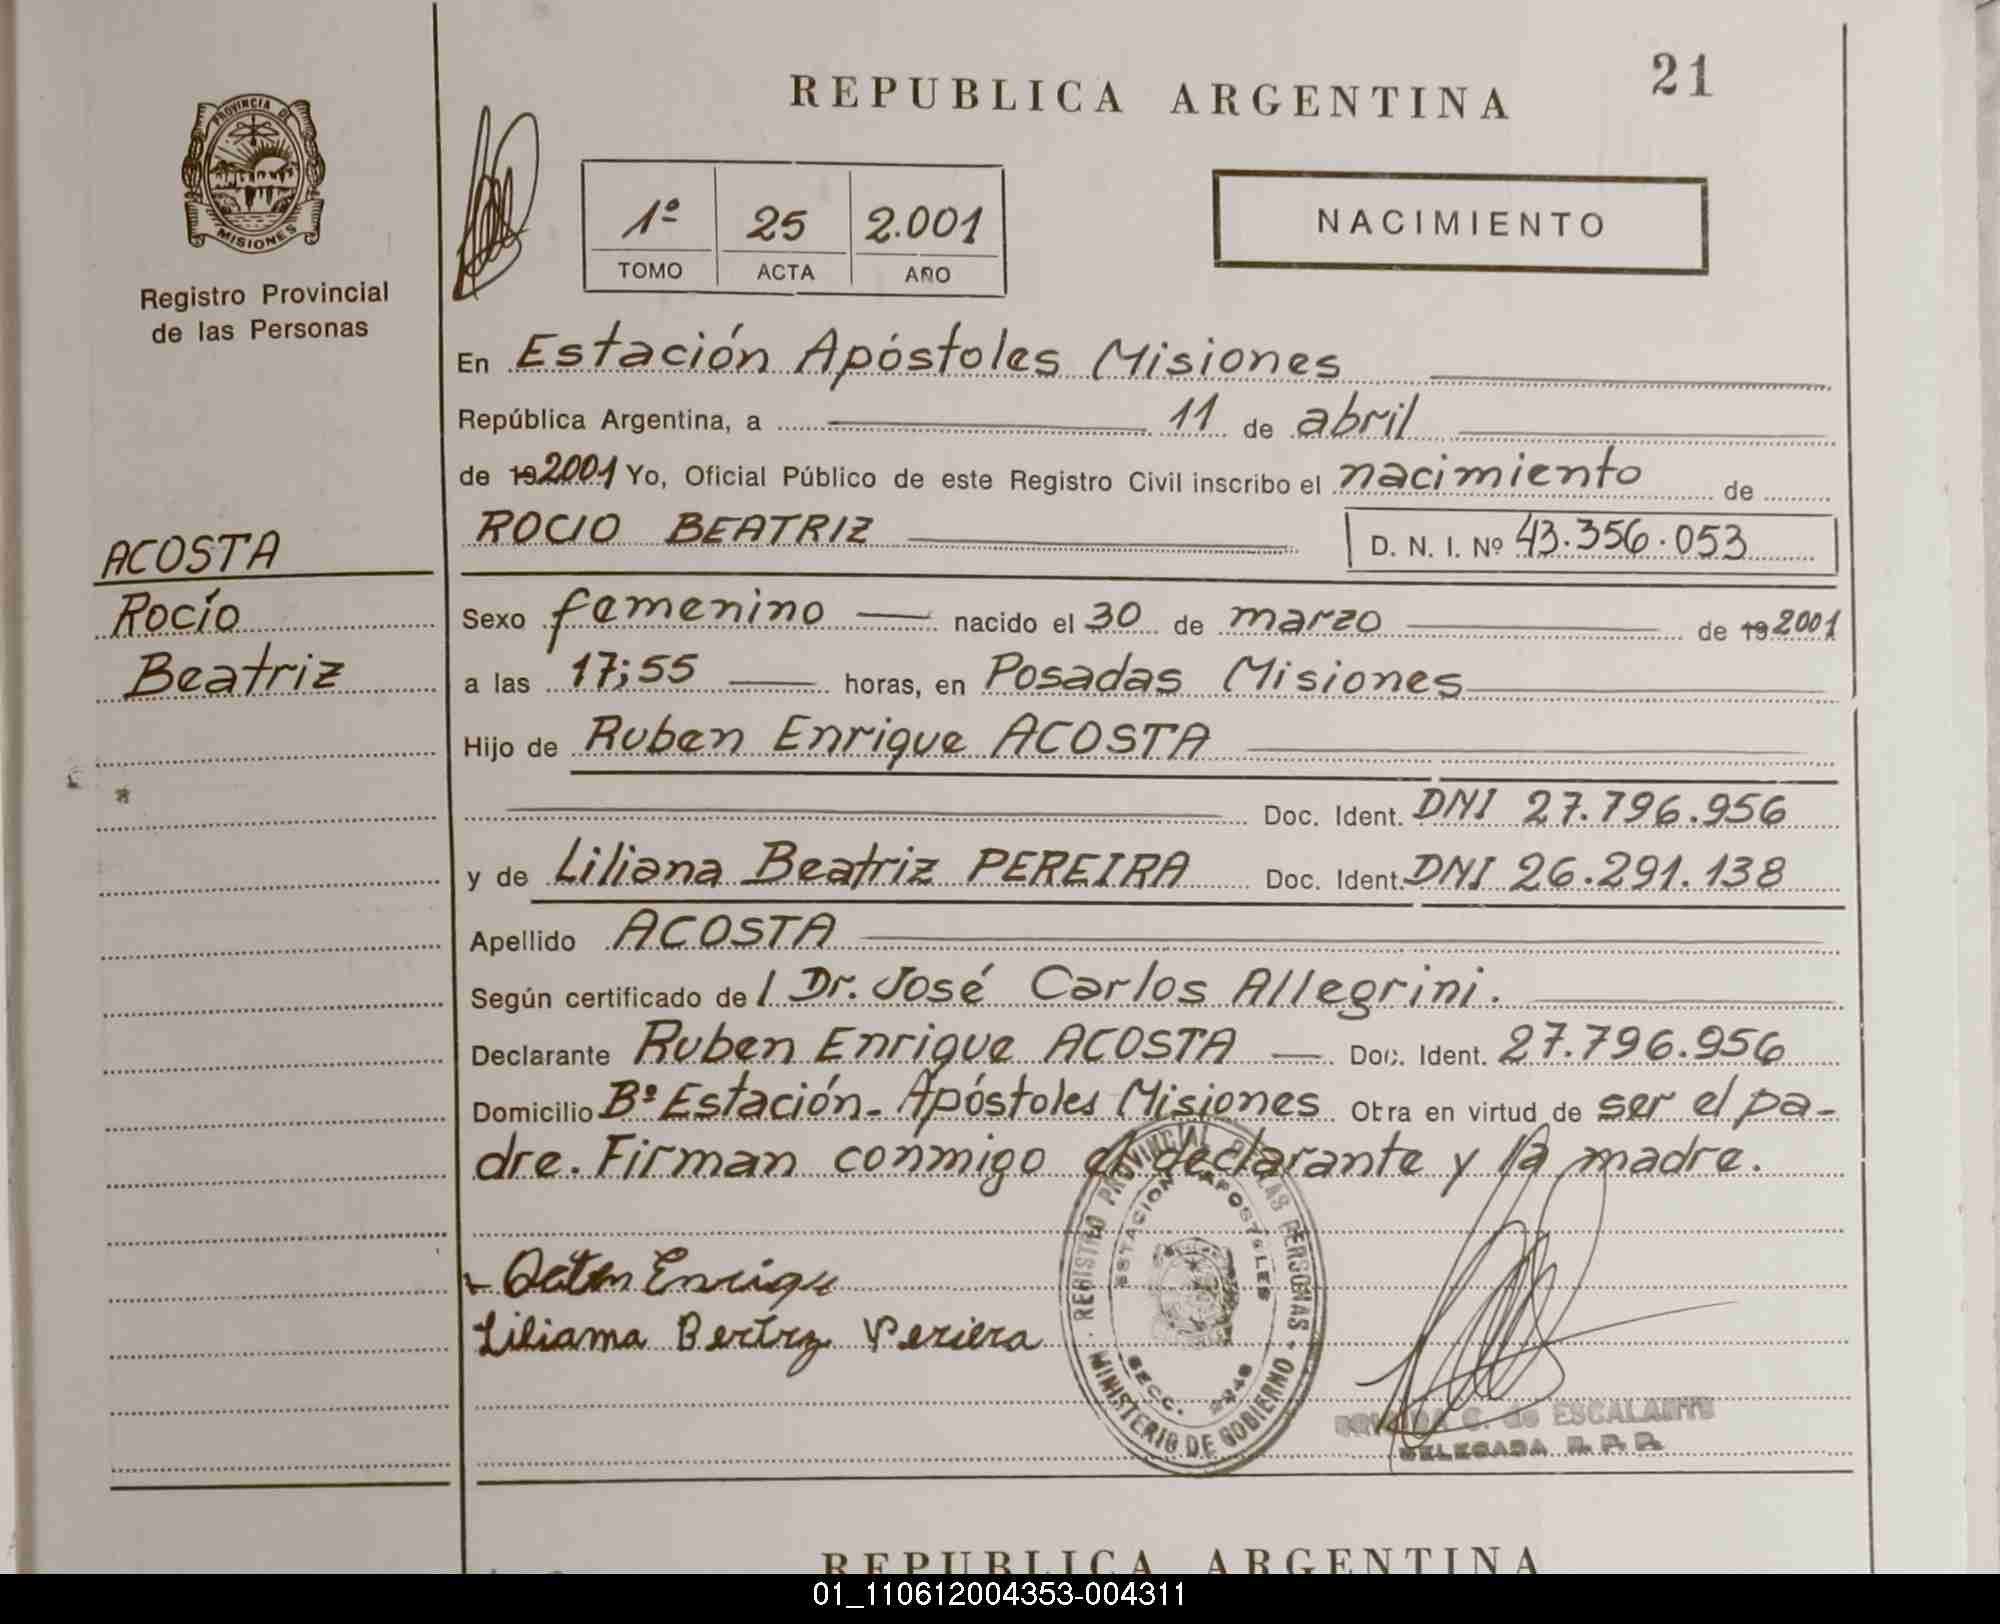 REPUBLICA ARGENTINA
21
PROVINCIA DE
MISIONES
Registro Provincial
de las Personas
1º 25 2.001
TOMO ACTA AÑO
NACIMIENTO
En Estación Apóstoles Misiones
República Argentina, a 11 de abril
de 19 2001 Yo, Oficial Público de este Registro Civil inscribo el nacimiento de
ROCIO BEATRIZ D. N. I. Nº 43.356.053
ACOSTA
Rocío
Beatriz
Sexo femenino nacido el 30 de marzo de 19 2001
a las 17;55 horas, en Posadas Misiones
Hijo de Ruben Enrique ACOSTA
Doc. Ident. DNI 27.796.956
y de Liliana Beatriz PEREIRA Doc. Ident. DNI 26.291.138
Apellido ACOSTA
Según certificado de l Dr. José Carlos Allegrini.
Declarante Ruben Enrique ACOSTA Doc. Ident. 27.796.956
Domicilio Bº Estación - Apóstoles Misiones Obra en virtud de ser el pa-
dre. Firman conmigo el declarante y la madre.
Enrique
Liliama
REGISTRO PROVINCIAL DE LAS PERSONAS
MINISTERIO DE GOBIERNO
ESTACION APOSTOLES
SECC.
C. de ESCALANTE
DELEGADA R. P. P.
REPUBLICA ARGENTINA
01_110612004353-004311